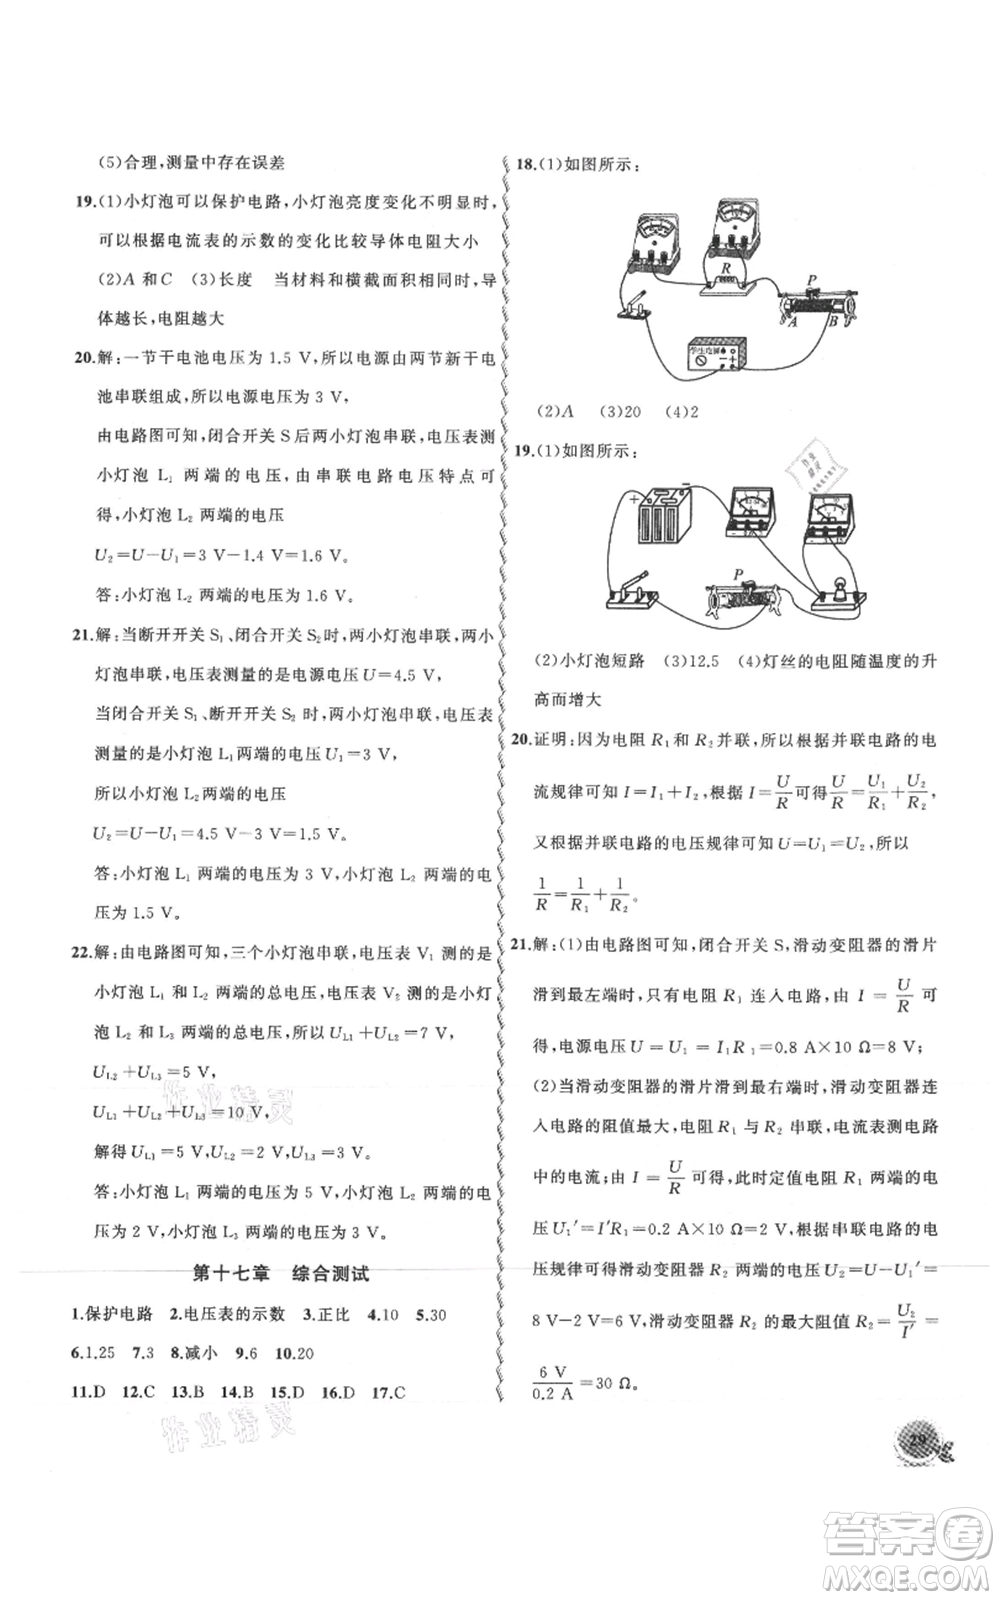 (5)合理,测量中存在误差
19.(1)小灯泡可以保护电路,小灯泡亮度变化不明显时,
可以根据电流表的示数的变化比较导体电阻大小
(2)A 和 C (3)长度 当材料和横截面积相同时,导
体越长,电阻越大
20.解:一节干电池电压为 1.5 V,所以电源由两节新干电
池串联组成,所以电源电压为 3 V,
由电路图可知,闭合开关 S 后两小灯泡串联,电压表测
小灯泡 L₁ 两端的电压,由串联电路电压特点可
得,小灯泡 L₂ 两端的电压
U₂=U-U₁=3 V-1.4 V=1.6 V。
答:小灯泡 L₂ 两端的电压为 1.6 V。
21.解:当断开开关 S₁、闭合开关 S₂时,两小灯泡串联,两小
灯泡串联,电压表测量的是电源电压 U=4.5 V,
当闭合开关 S₁、断开开关 S₂ 时,两小灯泡串联,电压表
测量的是小灯泡 L₁ 两端的电压 U₁=3 V,
所以小灯泡 L₂ 两端的电压
U₂=U-U₁=4.5 V-3 V=1.5 V。
答:小灯泡 L₁ 两端的电压为 3 V,小灯泡 L₂ 两端的电
压为 1.5 V。
22.解:由电路图可知,三个小灯泡串联,电压表 V₁ 测的是
小灯泡 L₁ 和 L₂ 两端的总电压,电压表 V₂ 测的是小灯
泡 L₂ 和 L₃ 两端的总电压,所以 U_L1+U_L2=7 V,
U_L2+U_L3=5 V,
U_L1+U_L2+U_L3=10 V,
解得 U_L1=5 V,U_L2=2 V,U_L3=3 V。
答:小灯泡 L₁ 两端的电压为 5 V,小灯泡 L₂ 两端的电
压为 2 V,小灯泡 L₃ 两端的电压为 3 V。
第十七章 综合测试
1.保护电路 2.电压表的示数 3.正比 4.10 5.30
6.1.25 7.3 8.减小 9.6 10.20
11.D 12.C 13.B 14.B 15.D 16.D 17.C
18.(1)如图所示:
R
P
A B
学生电源
(2)A (3)20 (4)2
19.(1)如图所示:
+ -
P
(2)小灯泡短路 (3)12.5 (4)灯丝的电阻随温度的升
高而增大
20.证明:因为电阻 R₁ 和 R₂ 并联,所以根据并联电路的电
流规律可知 I=I₁+I₂,根据 I=U/R 可得 U/R=U₁/R₁+U₂/R₂,
又根据并联电路的电压规律可知 U=U₁=U₂,所以
1/R=1/R₁+1/R₂。
21.解:(1)由电路图可知,闭合开关 S,滑动变阻器的滑片
滑到最左端时,只有电阻 R₁ 连入电路,由 I=U/R 可
得,电源电压 U=U₁=I₁R₁=0.8 A×10 Ω=8 V;
(2)当滑动变阻器的滑片滑到最右端时,滑动变阻器连
入电路的阻值最大,电阻 R₁ 与 R₂ 串联,电流表测电路
中的电流;由 I=U/R 可得,此时定值电阻 R₁ 两端的电
压 U₁′=I′R₁=0.2 A×10 Ω=2 V,根据串联电路的电
压规律可得滑动变阻器 R₂ 两端的电压 U₂=U-U₁′=
8 V-2 V=6 V,滑动变阻器 R₂ 的最大阻值 R₂=U₂/I′=
6 V/0.2 A=30 Ω。
29
作业精灵
作业精灵
答案卷
MXQE.COM